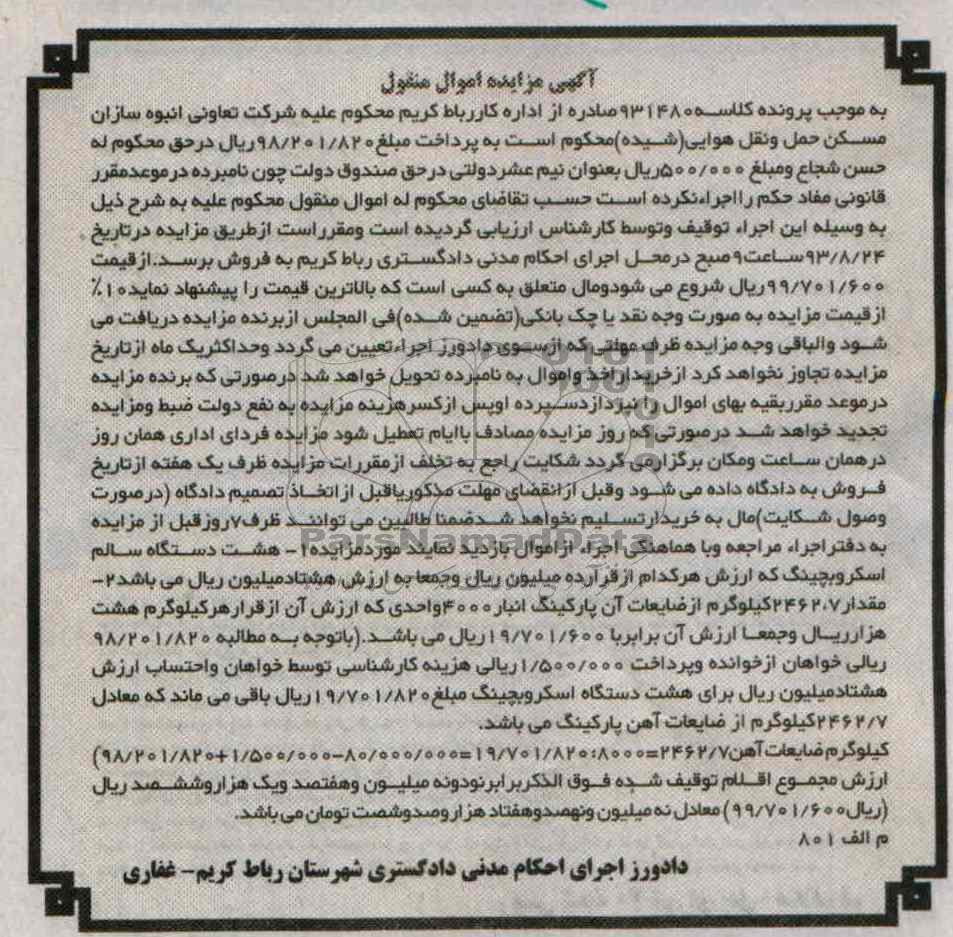 آگهی مزایده اموال منقول
به موجب پرونده کلاسه۹۳۱۴۸۰صادره از اداره کاررباط کریم محکوم علیه شرکت تعاونی انبوه سازان
مسکن حمل ونقل هوایی(شیده)محکوم است به پرداخت مبلغ۹۸/۲۰۱/۸۲۰ریال درحق محکوم له
حسن شجاع ومبلغ ۵۰۰/۰۰۰ریال بعنوان نیم عشردولتی درحق صندوق دولت چون نامبرده درموعدمقرر
قانونی مفاد حکم رااجراءنکرده است حسب تقاضای محکوم له اموال منقول محکوم علیه به شرح ذیل
به وسیله این اجراء توقیف وتوسط کارشناس ارزیابی گردیده است ومقرراست ازطریق مزایده درتاریخ
۹۳/۸/۲۴ساعت۹صبح درمحل اجرای احکام مدنی دادگستری رباط کریم به فروش برسد.ازقیمت
۹۹/۷۰۱/۶۰۰ریال شروع می شودومال متعلق به کسی است که بالاترین قیمت را پیشنهاد نماید۱۰٪
ازقیمت مزایده به صورت وجه نقد یا چک بانکی(تضمین شده)فی المجلس ازبرنده مزایده دریافت می
شود والباقی وجه مزایده ظرف مهلتی که ازسوی دادورز اجراءتعیین می گردد وحداکثریک ماه ازتاریخ
مزایده تجاوز نخواهد کرد ازخریدار اخذ واموال به نامبرده تحویل خواهد شد درصورتی که برنده مزایده
درموعد مقرربقیه بهای اموال را نپردازدسپرده اوپس ازکسرهزینه مزایده به نفع دولت ضبط ومزایده
تجدید خواهد شد درصورتی که روز مزایده مصادف باایام تعطیل شود مزایده فردای اداری همان روز
درهمان ساعت ومکان برگزارمی گردد شکایت راجع به تخلف ازمقررات مزایده ظرف یک هفته ازتاریخ
فروش به دادگاه داده می شود وقبل ازانقضای مهلت مذکوریاقبل ازاتخاذ تصمیم دادگاه (درصورت
وصول شکایت)مال به خریدارتسلیم نخواهد شدضمنا طالبین می توانند ظرف۷روزقبل از مزایده
به دفتراجراء مراجعه وبا هماهنگی اجراء ازاموال بازدید نمایند موردمزایده۱- هشت دستگاه سالم
اسکروبچینگ که ارزش هرکدام ازقرارده میلیون ریال وجمعا به ارزش هشتادمیلیون ریال می باشد۲-
مقدار۲۴۶۲،۷کیلوگرم ازضایعات آن پارکینگ انبار۴۰۰۰واحدی که ارزش آن ازقرارهرکیلوگرم هشت
هزارریال وجمعا ارزش آن برابربا ۱۹/۷۰۱/۶۰۰ریال می باشد.(باتوجه به مطالبه ۹۸/۲۰۱/۸۲۰
ریالی خواهان ازخوانده وپرداخت ۱/۵۰۰/۰۰۰ریالی هزینه کارشناسی توسط خواهان واحتساب ارزش
هشتادمیلیون ریال برای هشت دستگاه اسکروبچینگ مبلغ۱۹/۷۰۱/۸۲۰ریال باقی می ماند که معادل
۲۴۶۲/۷کیلوگرم از ضایعات آهن پارکینگ می باشد.
کیلوگرم ضایعات آهن۲۴۶۲/۷=۸۰۰۰:۱۹/۷۰۱/۸۲۰=۸۰/۰۰۰/۰۰۰-۱/۵۰۰/۰۰۰+۹۸/۲۰۱/۸۲۰)
ارزش مجموع اقلام توقیف شده فوق الذکربرابرنودونه میلیون وهفتصد ویک هزاروششصد ریال
(ریال۹۹/۷۰۱/۶۰۰) معادل نه میلیون ونهصدوهفتاد هزاروصدوشصت تومان می باشد.
م الف ۸۰۱
دادورز اجرای احکام مدنی دادگستری شهرستان رباط کریم- غفاری
ParsNamadData